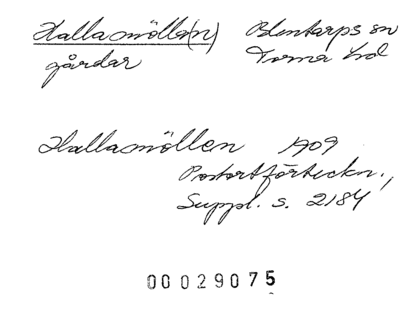 Hallamölla(n) Blentarps sn
gårdar Torna hd
Hallamöllen 1909
Postortförteckn.,
Suppl. s. 2184
00029075